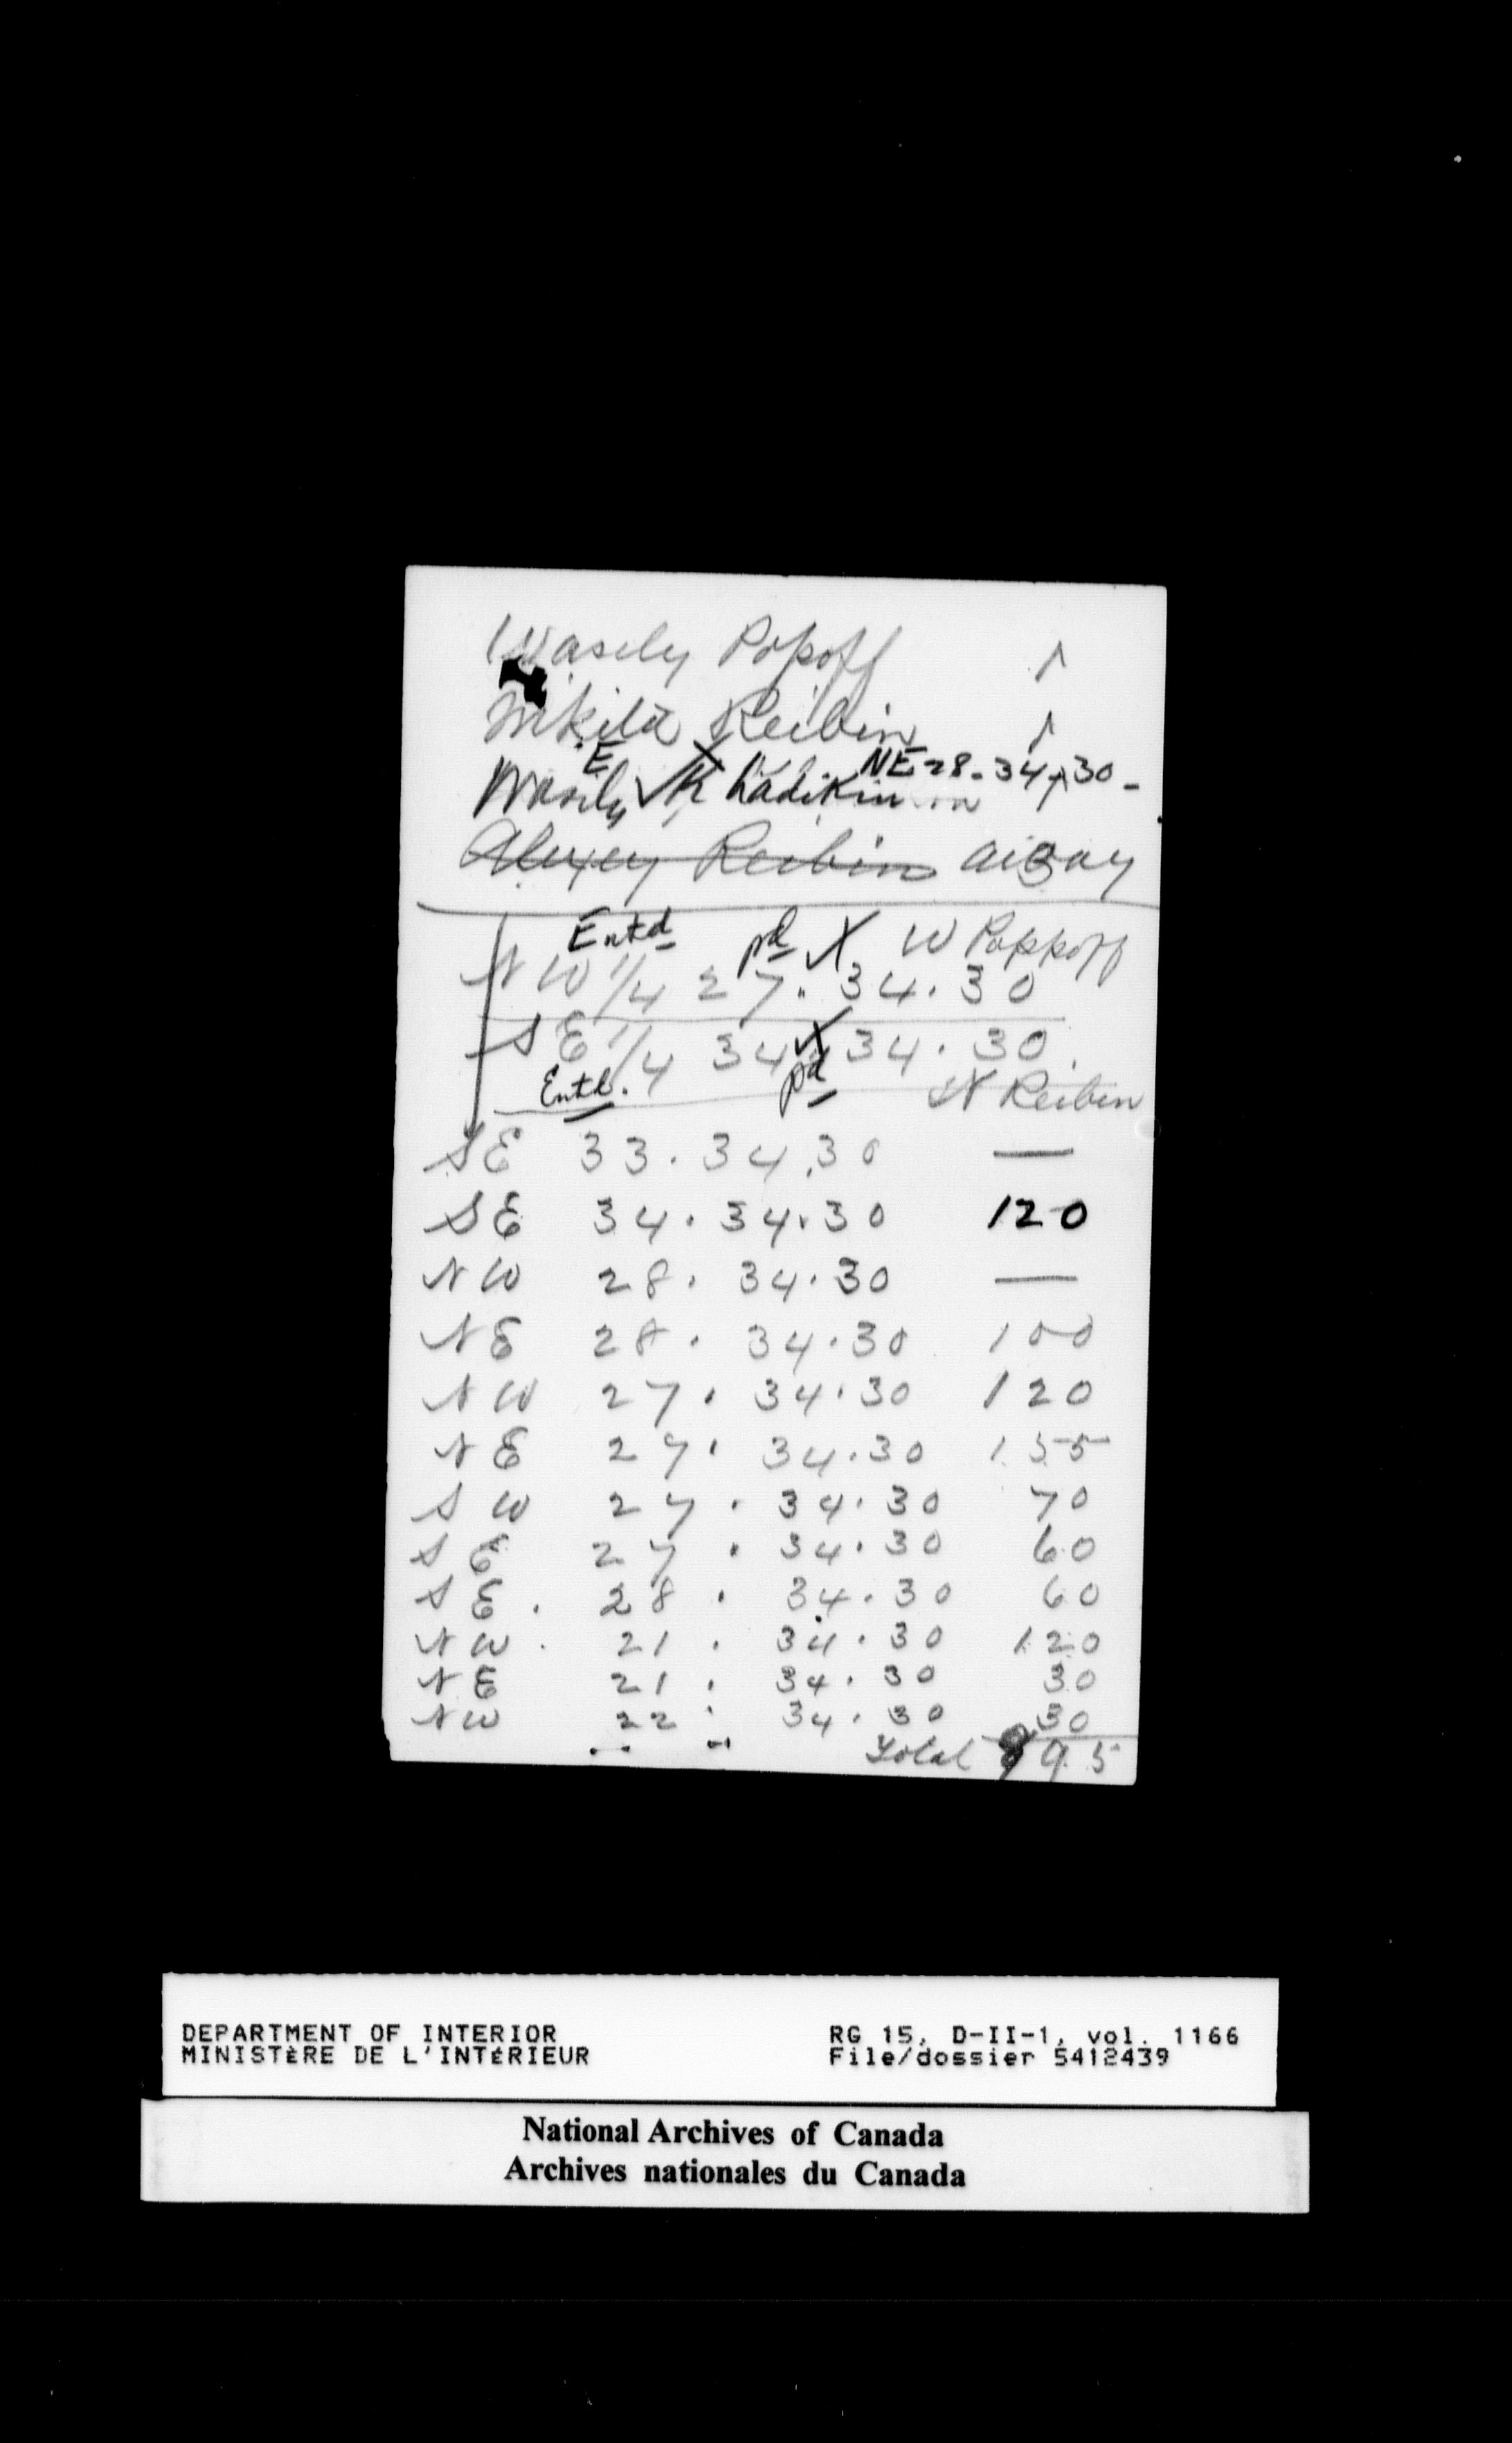 Wasely Popoff
Nikita Reibin
E NE 28 - 34 - 30 -
Wasily Khadikin
Alexey Reibin away
Entd pd X W Poppoff
NW 1/4 27. 34. 30
SE 1/4 34 X 34. 30
Entd. pd N Reibin
SE 33. 34. 30 —
SE 34. 34. 30 120
NW 28. 34. 30 —
NE 28. 34. 30 100
NW 27. 34. 30 120
NE 27. 34. 30 155
SW 27. 34. 30 70
SE 27. 34. 30 60
SE. 28. 34. 30 60
NW. 21. 34. 30 120
NE 21. 34. 30 30
NW 22. 34. 30 30
Total 895
DEPARTMENT OF INTERIOR RG 15, D-II-1, vol. 1166
MINISTÈRE DE L'INTÉRIEUR File/dossier 5412439
National Archives of Canada
Archives nationales du Canada